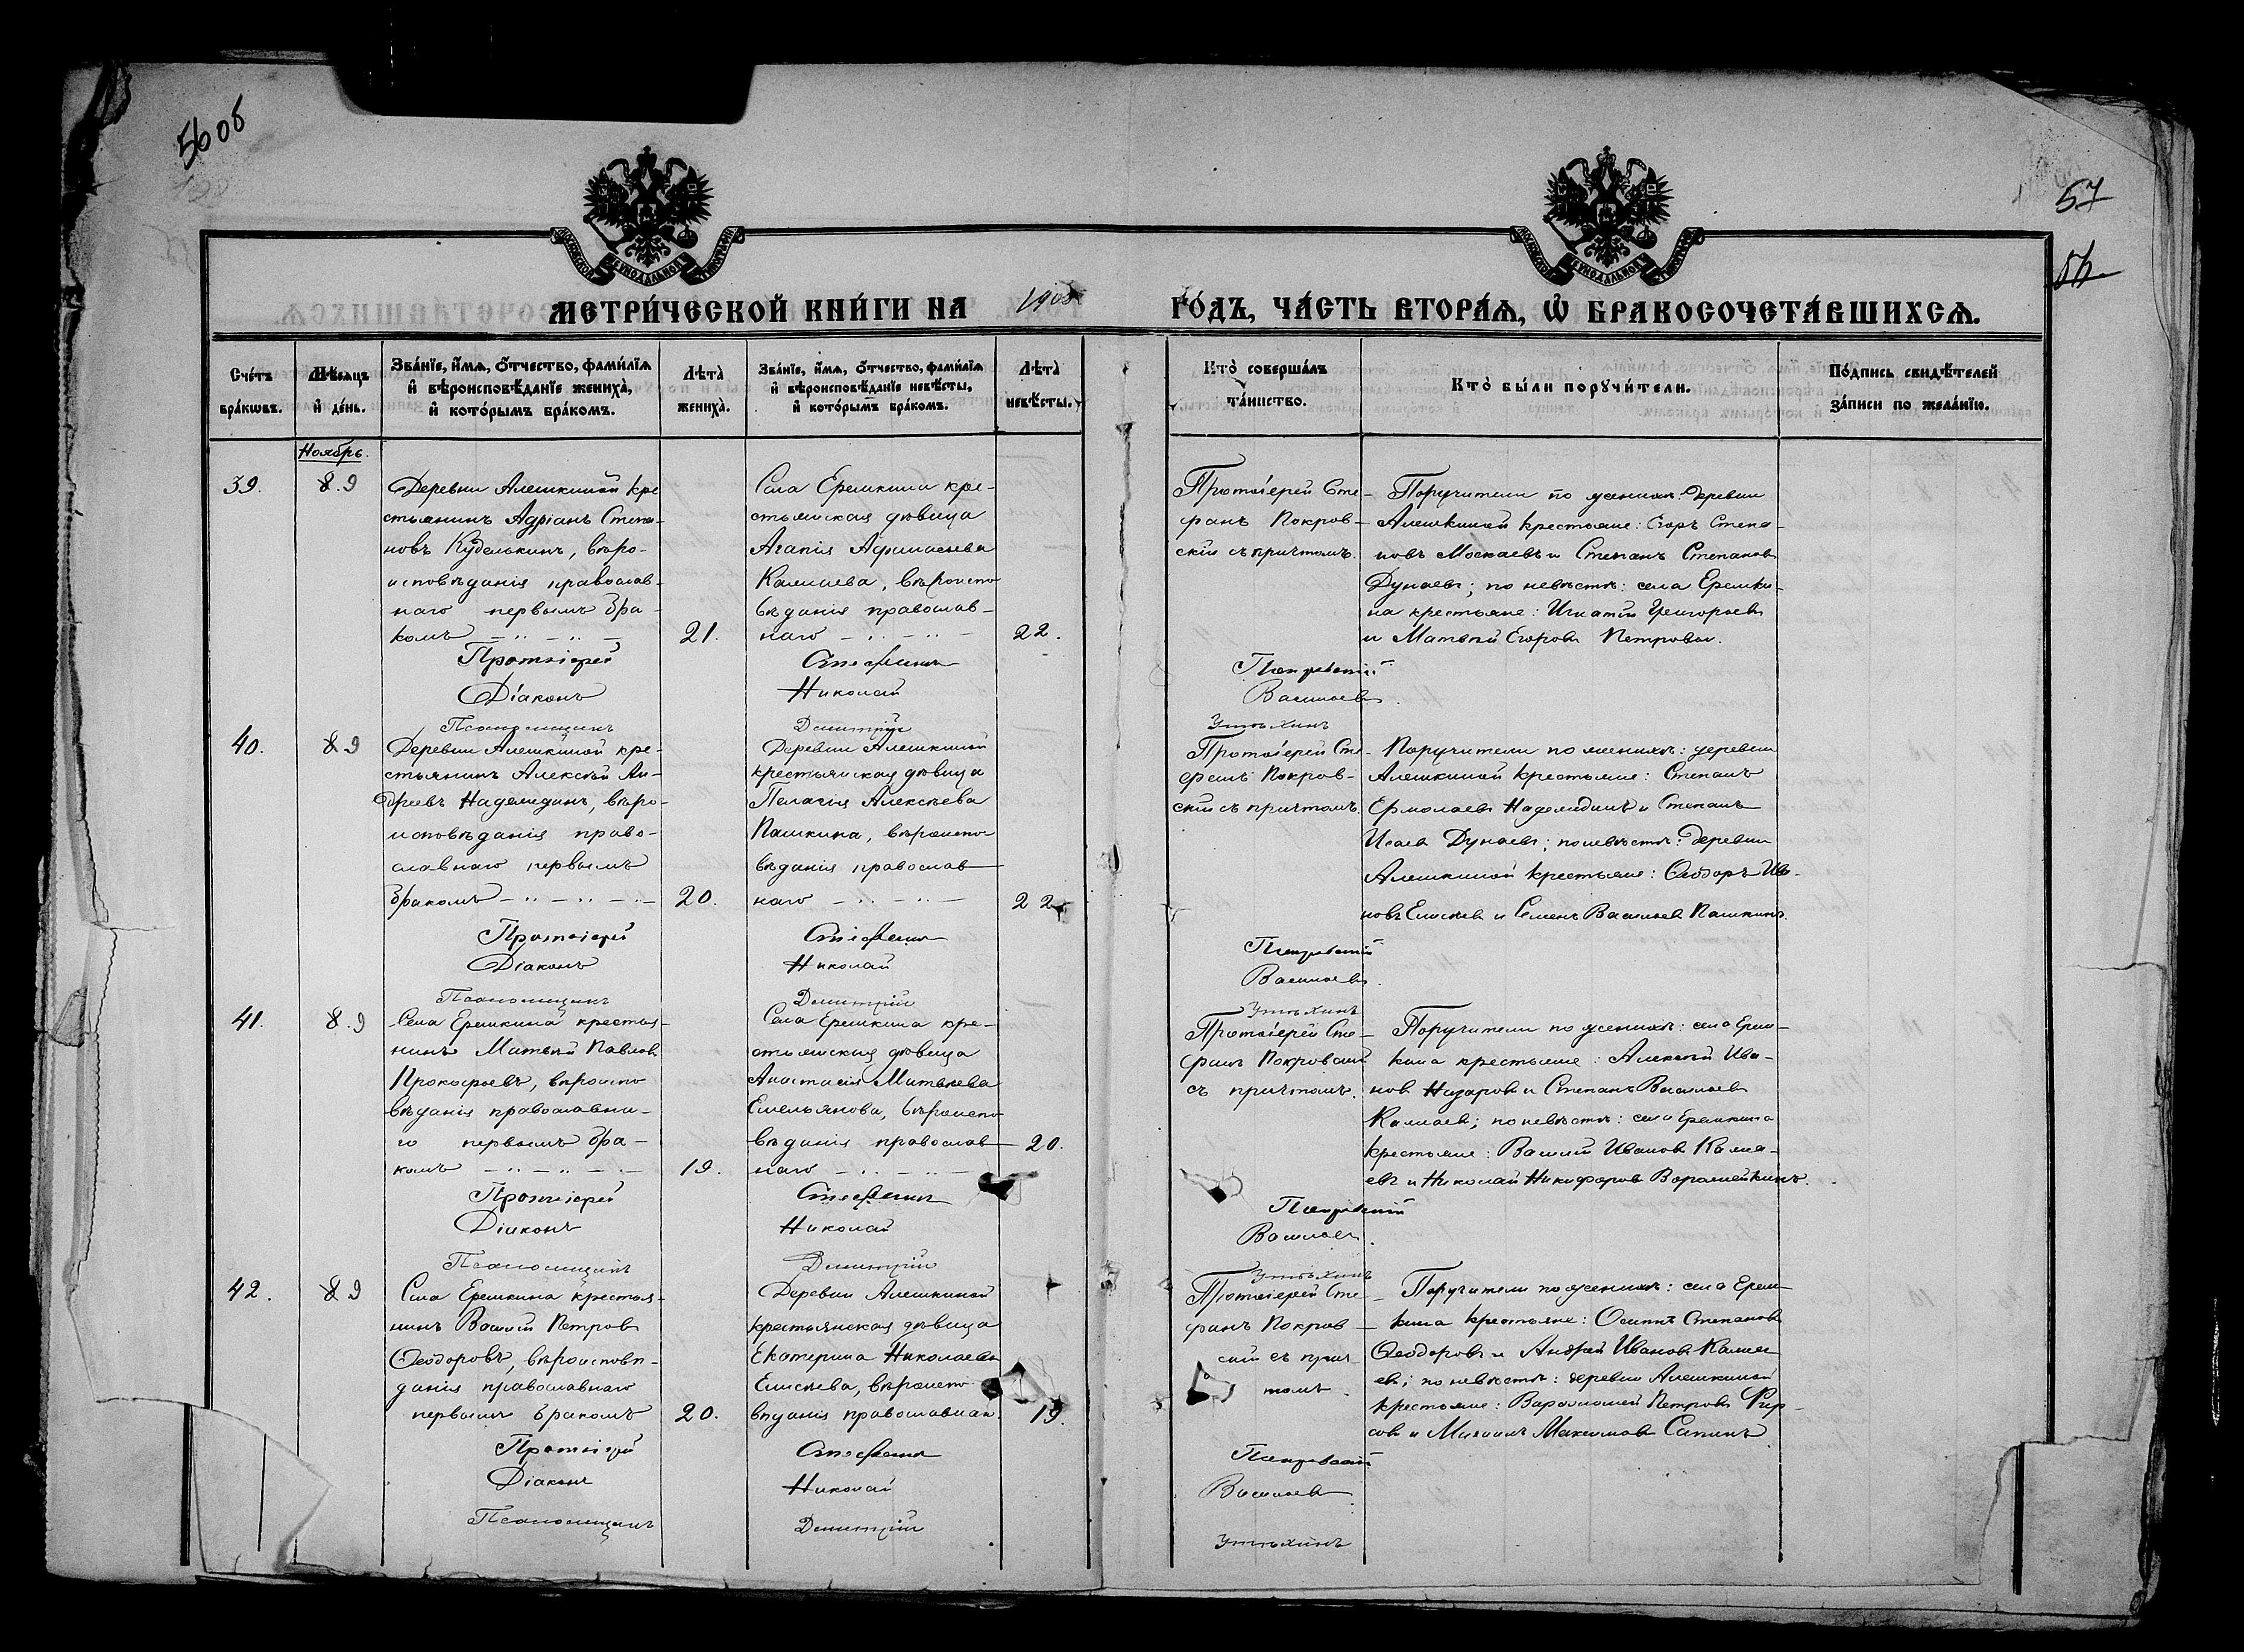 56 об
57
МОСКОВСКОЙ СѴНОДАЛЬНОЙ ТИПОГРАФІИ
МОСКОВСКОЙ СѴНОДАЛЬНОЙ ТИПОГРАФІИ
МЕТРИ́ЧЕСКОЙ КНИ́ГИ НА 1908 ГО́ДЪ, ЧА́СТЬ ВТОРА́Ѧ, Ѡ҆ БРАКОСОЧЕТА́ВШИХСѦ.
Сче́тъ бра́кѡвъ.
Мѣ́сяцъ и҆ де́нь.
Зва́нїе, и҆́мѧ, ѻ҆́тчество, фами́лїѧ и҆ вѣроисповѣ́данїе жениха̀, и҆ кото́рымъ бра́комъ.
Лѣта̀ жениха̀.
Зва́нїе, и҆́мѧ, ѻ҆́тчество, фами́лїѧ и҆ вѣроисповѣ́данїе невѣ́сты, и҆ кото́рымъ бра́комъ.
Лѣта̀ невѣ́сты.
Кто̀ соверша́лъ та́инство.
Кто̀ бы́ли порꙋчи́тели.
По́дпись свидѣ́телей за́писи по жела́нїю.
Ноябрь.
39.
8. 9
Деревни Алешкиной кре
стьянинъ Адріанъ Степа-
новъ Куделькинъ, вѣро-
исповѣданія православ-
наго первымъ бра-
комъ
21.
Села Еремкина кре-
стьянская дѣвица
Агапія Афанасьева
Камаева, вѣроиспо
вѣданія православ-
наго
22.
Протоіерей Сте-
фанъ Покров-
скій съ причтомъ.
Поручители по женихѣ: деревни
Алешкиной крестьяне: Егоръ Степа-
новъ Москаевъ и Степанъ Степановъ
Дунаевъ; по невѣстѣ: села Еремки-
на крестьяне: Игнатій Григорьевъ
и Матвѣй Егоровъ Петровы.
Протоіерей Стефанъ Покровскій
Діаконъ Николай Васильевъ.
Псаломщикъ Димитрій Утѣхинъ
40.
8 9
Деревни Алешкиной кре-
стьянинъ Алексѣй Ан-
дреевъ Надеждинъ, вѣро-
исповѣданія право-
славнаго первымъ
бракомъ
20.
Деревни Алешкиной
крестьянская дѣвица
Пелагія Алексѣева
Пашкина, вѣроиспо
вѣданія православ
наго
22
Протоіерей Сте-
фанъ Покров-
скій съ причтомъ.
Поручители по женихѣ: деревни
Алешкиной крестьяне: Степанъ
Ермолаевъ Надеждинъ и Степанъ
Исаевъ Дунаевъ; по невѣстѣ: деревни
Алешкиной крестьяне: Ѳеодоръ Ива-
новъ Елисѣевъ и Семенъ Васильевъ Пашкинъ.
Протоіерей Стефанъ Покровскій
Діаконъ Николай Васильевъ.
Псаломщикъ Димитрій Утѣхинъ
41.
8. 9
Села Еремкина крестья-
нинъ Матвѣй Павловъ
Прокофьевъ, вѣроиспо
вѣданія православна-
го первымъ бра-
комъ
19.
Села Еремкина кре-
стьянская дѣвица
Анастасія Матвѣева
Емельянова, вѣроиспо
вѣданія православ
наго
20.
Протоіерей Сте-
фанъ Покровскій
съ причтомъ.
Поручители по женихѣ: села Ерем-
кина крестьяне: Алексѣй Ива-
новъ Назаровъ и Степанъ Васильевъ
Камаевъ; по невѣстѣ: села Еремкина
крестьяне: Василій Ивановъ Кама-
евъ и Николай Никифоровъ Варламейкинъ.
Протоіерей Стефанъ Покровскій
Діаконъ Николай Васильевъ.
Псаломщикъ Димитрій Утѣхинъ
42.
8 9
Села Еремкина крестья-
нинъ Василій Петровъ
Ѳеодоровъ, вѣроисповѣ-
данія православнаго
первымъ бракомъ
20.
Деревни Алешкиной
крестьянская дѣвица
Екатерина Николаева
Елисѣева, вѣроиспо
вѣданія православнаго.
19.
Протоіерей Сте
фанъ Покров-
скій съ прич-
томъ.
Поручители по женихѣ: села Ерем-
кина крестьяне: Осипъ Степановъ
Ѳеодоровъ и Андрей Ивановъ Кама-
евъ; по невѣстѣ: деревни Алешкиной
крестьяне: Варѳоломей Петровъ Фир-
совъ и Михаилъ Максимовъ Сапинъ
Протоіерей Стефанъ Покровскій
Діаконъ Николай Васильевъ.
Псаломщикъ Димитрій Утѣхинъ